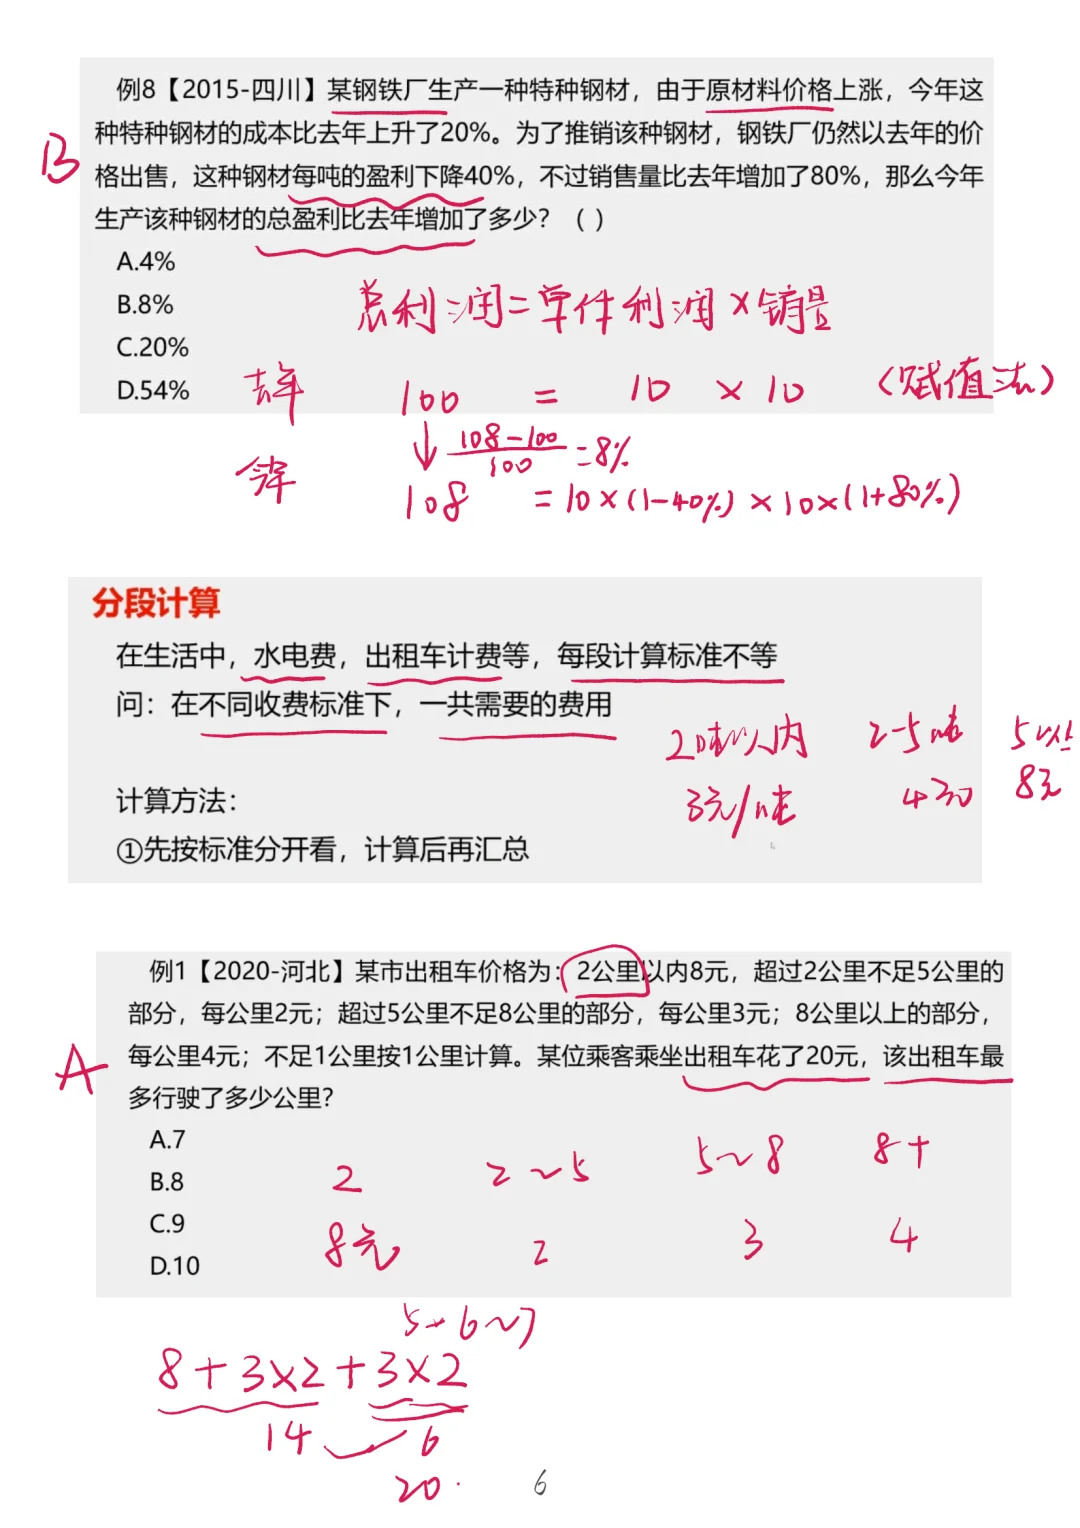 例8【2015-四川】某钢铁厂生产一种特种钢材，由于原材料价格上涨，今年这
种特种钢材的成本比去年上升了20%。为了推销该种钢材，钢铁厂仍然以去年的价
B
格出售，这种钢材每吨的盈利下降40%，不过销售量比去年增加了80%，那么今年
生产该种钢材的总盈利比去年增加了多少？（ ）
A.4%
B.8%
总利润=单件利润×销量
C.20%
D.54%
去年 100 = 10 × 10 （赋值法）
108-100
100
=8%
今年 108 =10×(1-40%)×10×(1+80%)
分段计算
在生活中，水电费，出租车计费等，每段计算标准不等
问：在不同收费标准下，一共需要的费用
2吨以内 2-5吨 5以上
3元/吨 4元 8元
计算方法：
①先按标准分开看，计算后再汇总
例1【2020-河北】某市出租车价格为：2公里以内8元，超过2公里不足5公里的
部分，每公里2元；超过5公里不足8公里的部分，每公里3元；8公里以上的部分，
A
每公里4元；不足1公里按1公里计算。某位乘客乘坐出租车花了20元，该出租车最
多行驶了多少公里？
A.7
B.8
2 2~5 5~8 8+
C.9
8元 2 3 4
D.10
5~6~7
8+3×2+3×2
14 6
20
6